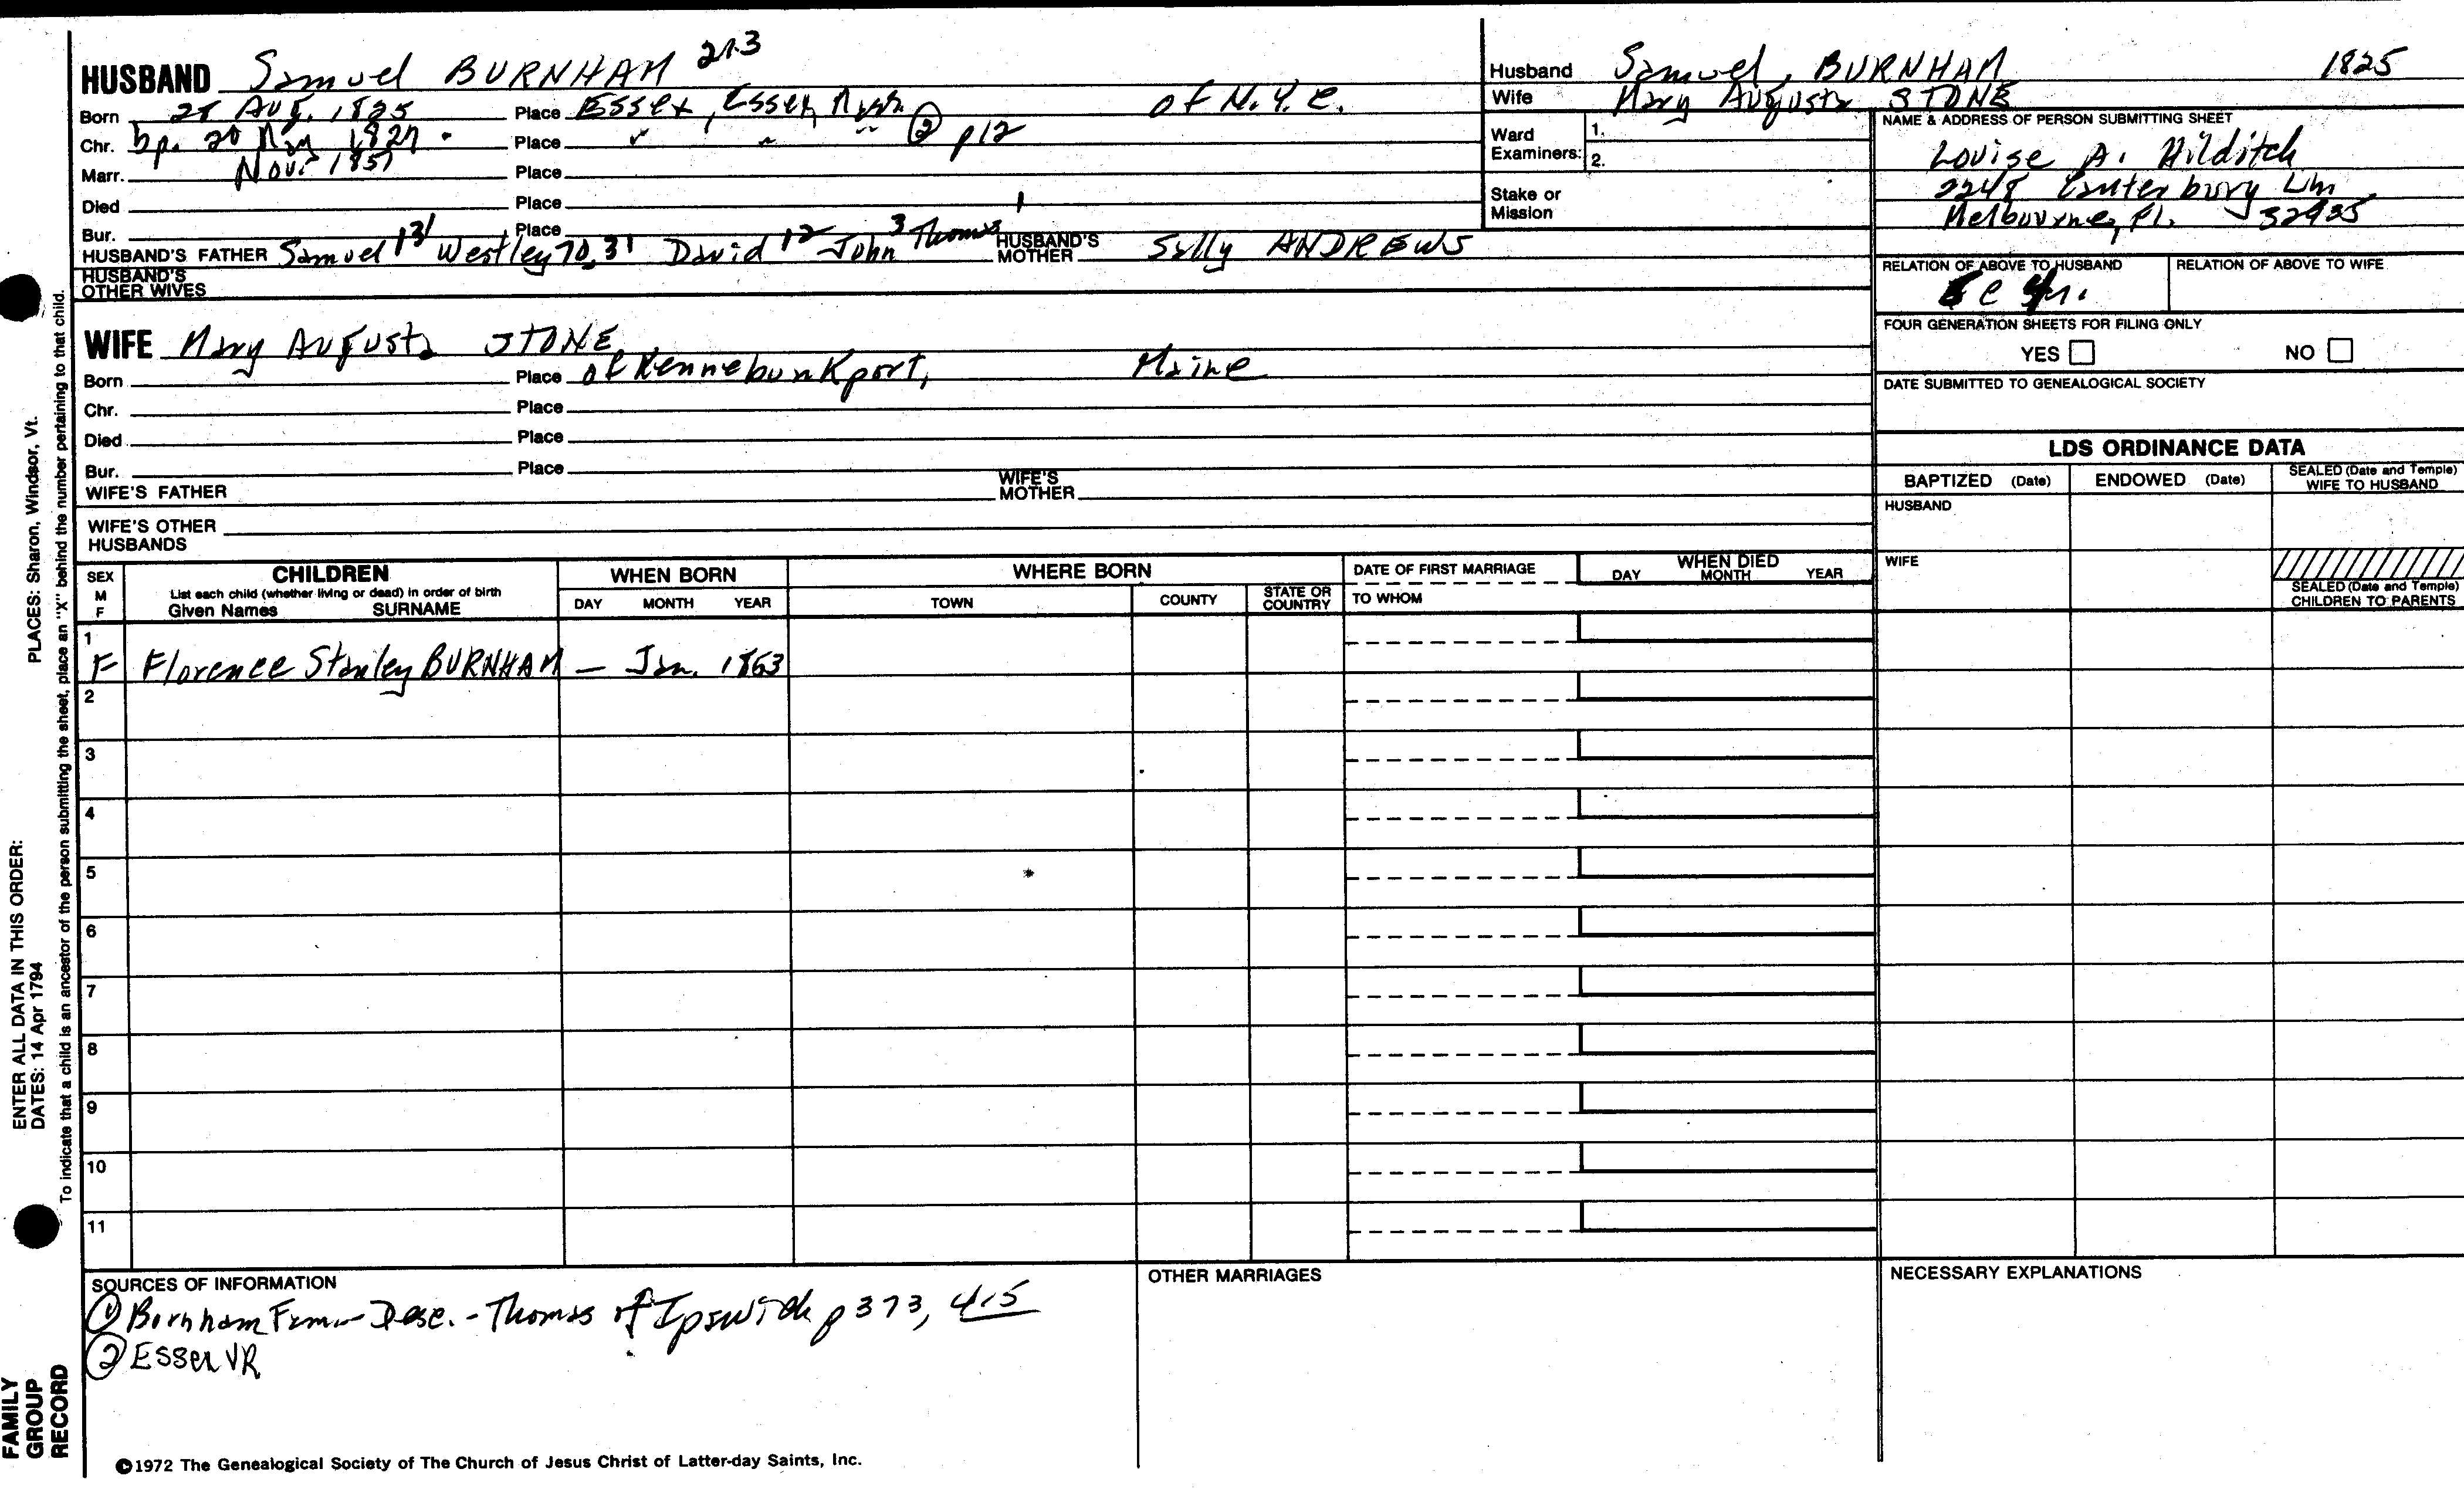 HUSBAND Samuel BURNHAM 213
Born 28 Aug. 1825 Place Essex, Essex, of N.Y.C.
Chr. bp. 20 May 1827 Place " " " ② p12
Marr. Nov. 1857 Place
Died Place
Bur. Place
HUSBAND'S FATHER Samuel 131 Westley 70, 31 David 12 John 3 Thomas 1 HUSBAND'S MOTHER Sally ANDREWS
HUSBAND'S OTHER WIVES
WIFE Mary Augusta STONE
Born Place of Kennebunkport, Maine
Chr. Place
Died Place
Bur. Place
WIFE'S FATHER WIFE'S MOTHER
WIFE'S OTHER HUSBANDS
Husband Samuel, BURNHAM 1825
Wife Mary Augusta STONE
Ward Examiners: 1.
2.
Stake or Mission
NAME & ADDRESS OF PERSON SUBMITTING SHEET
Louise A. Hilditch
2248 Canterbury Ln
Melbourne, Fl. 32935
RELATION OF ABOVE TO HUSBAND RELATION OF ABOVE TO WIFE
FOUR GENERATION SHEETS FOR FILING ONLY
YES NO
DATE SUBMITTED TO GENEALOGICAL SOCIETY
LDS ORDINANCE DATA
BAPTIZED (Date) ENDOWED (Date) SEALED (Date and Temple) WIFE TO HUSBAND
HUSBAND
WIFE
SEALED (Date and Temple) CHILDREN TO PARENTS
SEX M F CHILDREN WHEN BORN WHERE BORN DATE OF FIRST MARRIAGE WHEN DIED
List each child (whether living or dead) in order of birth
Given Names SURNAME DAY MONTH YEAR TOWN COUNTY STATE OR COUNTRY TO WHOM DAY MONTH YEAR
1
F Florence Stanley BURNHAM — Jan. 1863
2
3
4
5
6
7
8
9
10
11
SOURCES OF INFORMATION
① Burnham Fam - Desc. - Thomas of Ipswich p 373, 415
② Essex VR
OTHER MARRIAGES
NECESSARY EXPLANATIONS
©1972 The Genealogical Society of The Church of Jesus Christ of Latter-day Saints, Inc.
FAMILY GROUP RECORD
ENTER ALL DATA IN THIS ORDER:
DATES: 14 Apr 1794 PLACES: Sharon, Windsor, Vt.
To indicate that a child is an ancestor of the person submitting the sheet, place an "X" behind the number pertaining to that child.